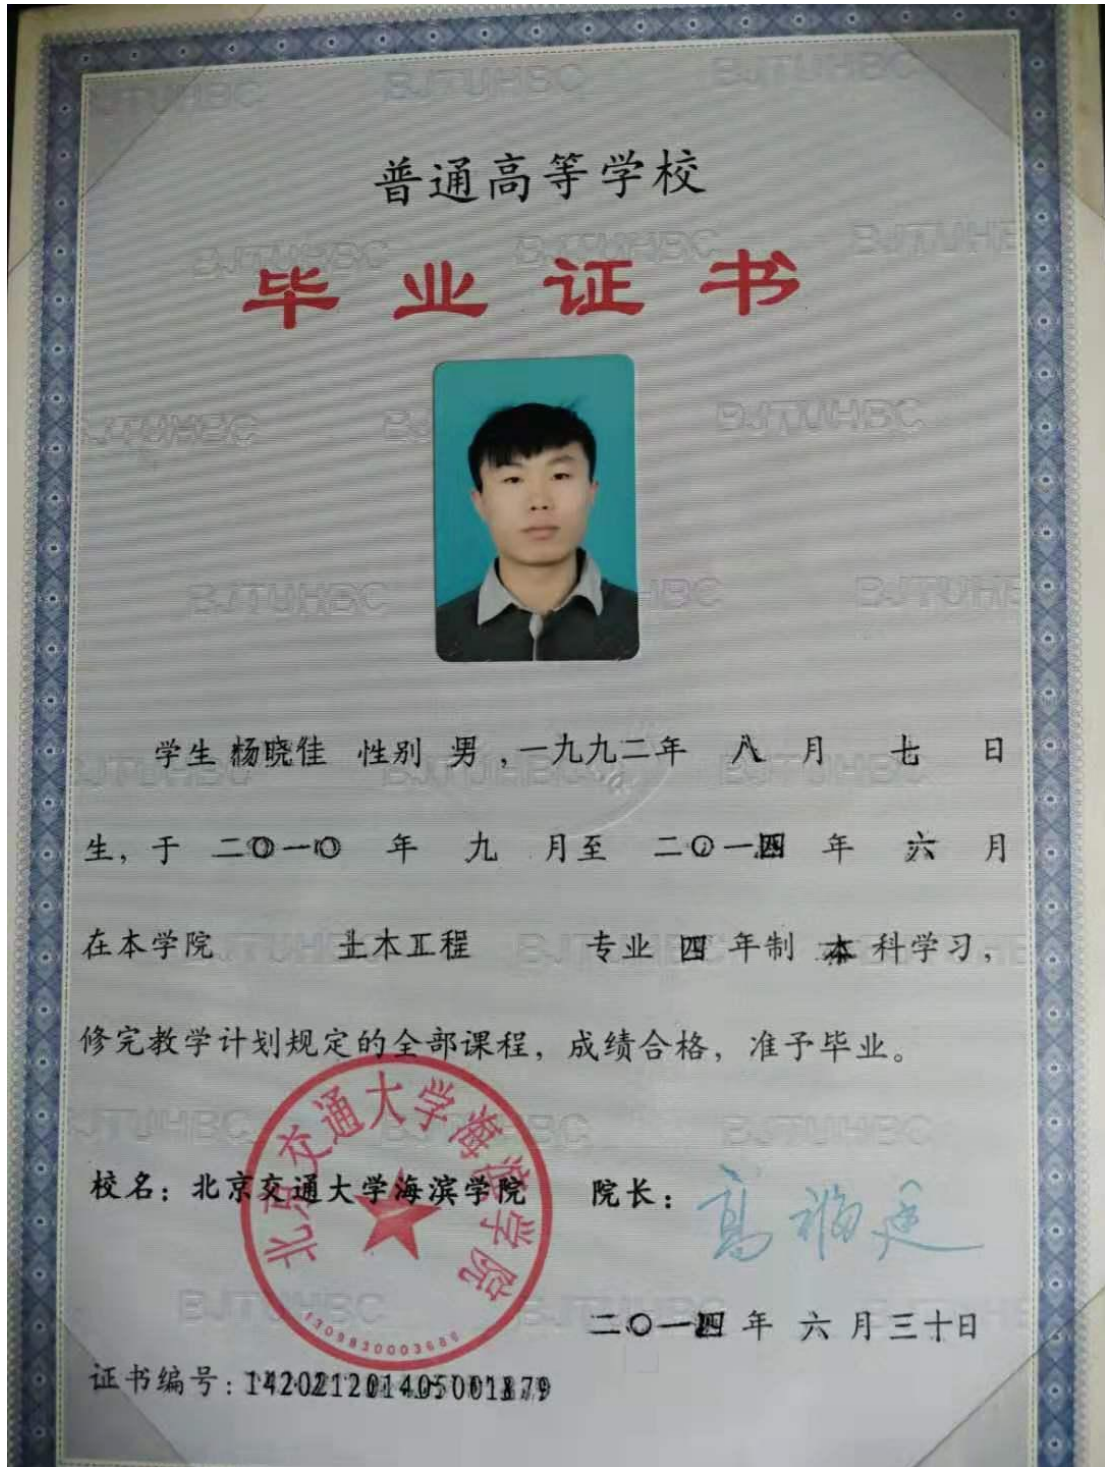 普通高等学校
毕业证书
学生 杨晓佳 性别 男，一九九二年 八 月 七 日
生，于 二〇一〇 年 九 月至 二〇一四 年 六 月
在本学院 土木工程 专业 四 年制 本 科学习，
修完教学计划规定的全部课程，成绩合格，准予毕业。
校名：北京交通大学海滨学院 院长：高福廷
北京交通大学海滨学院
二〇一四 年 六 月三十日
证书编号：142021201405001879
BJTUHBC